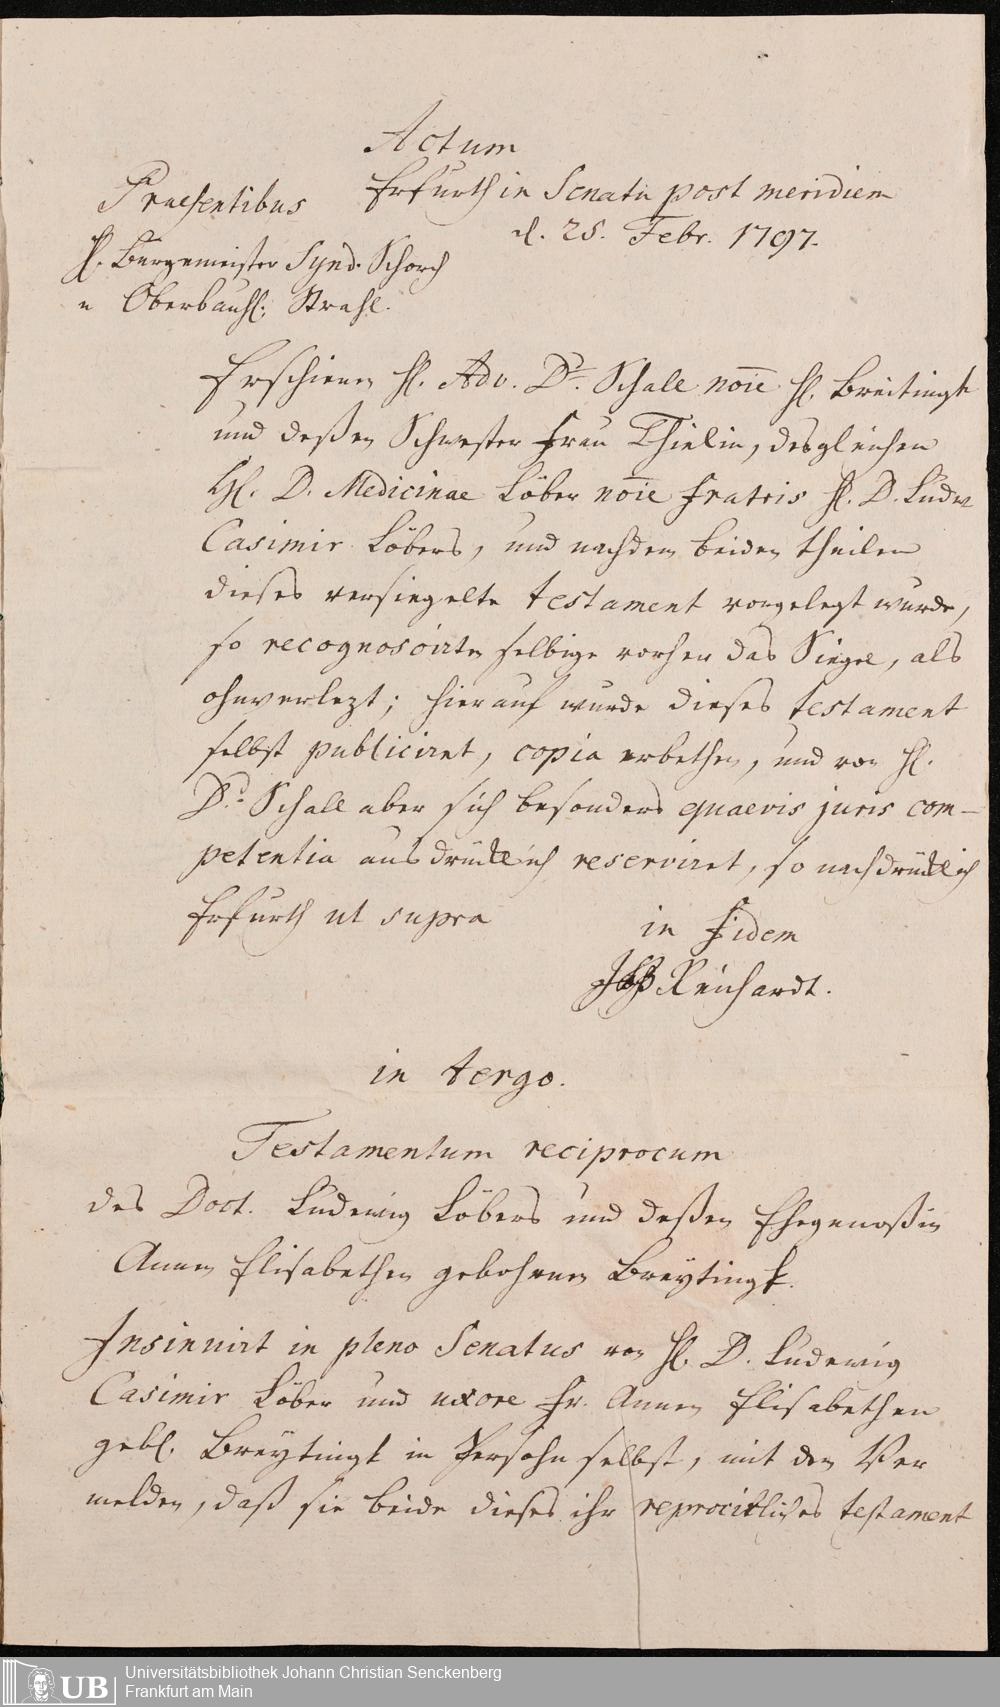 Actum
Erfurth in Senatu post meridiem
d. 25. Febr. 1797.
Praesentibus
H. Burgemeister Synd. Schorch
u Oberbauh. Strahl.
Erschienen H. Adv. Dr. Schall noie H. Breitingh
und deßen Schwester Frau Thielin, desgleichen
H. D. Medicinae Löber noie fratris H. D. Ludw
Casimir Löbers, und nachdem beiden theilen
dieses versiegelte testament vorgelegt wurde,
so recognoscirten selbige vorher das Siegel, als
ohnverlezt; hierauf wurde dieses testament
selbst publiciret, copia erbethen, und von H.
Dr. Schall aber sich besonders quaevis juris com-
petentia ausdrücklich reserviret, so nachdrücklich
Erfurth ut supra
in fidem
Reinhardt.
in tergo.
Testamentum reciprocum
des Doct. Ludewig Löbers und deßen Ehegenoßin
Annen Elisabethen gebohrnen Breytingk.
Insinuirt in pleno Senatus von H. D. Ludewig
Casimir Löber und uxore Fr. Annen Elisabethen
gebl. Breytingk in Persohn selbst, mit dem Ver
melden, daß sie beide dieses ihr reprocikliches testament
UB Universitätsbibliothek Johann Christian Senckenberg
Frankfurt am Main